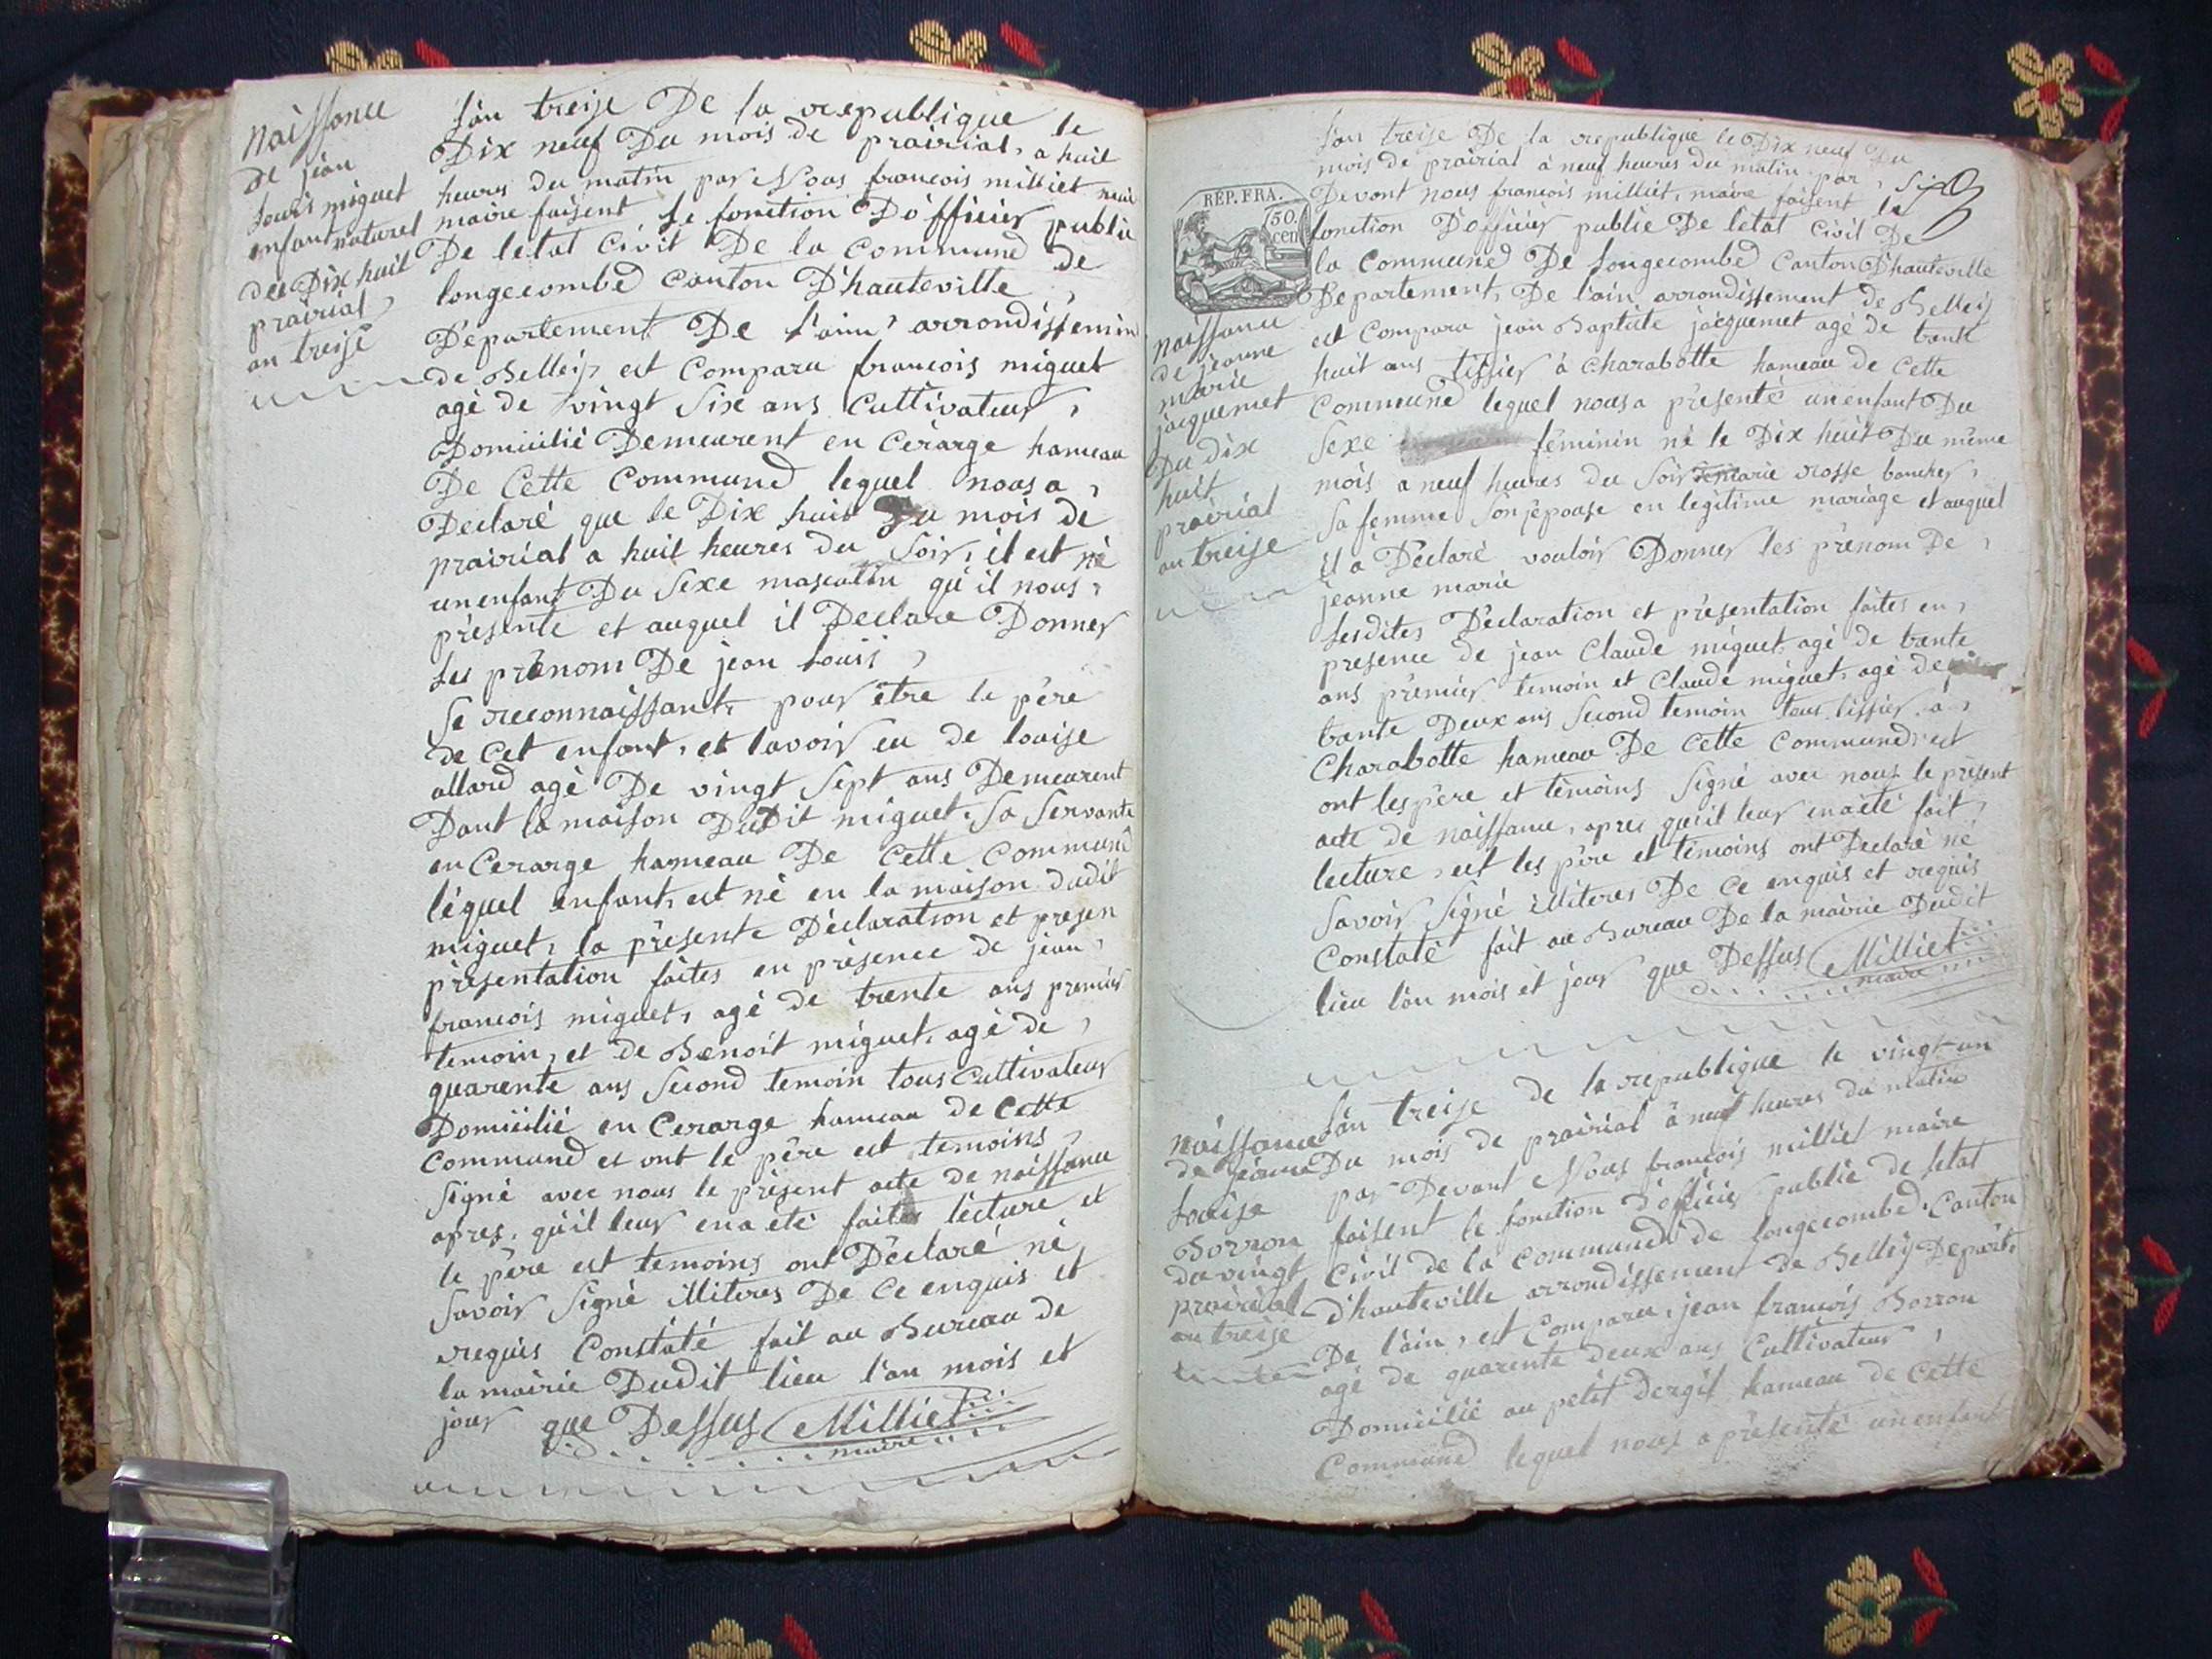 naissance
de jean
Louis miguet
enfant naturel
du Dix huit
prairial
an treise
L'an treise De la republique le
Dix neuf Du mois de prairial, a huit
heures du matin par Nous francois milliet
maire faisent le fonction D'officier public
De letat Civil De la Commune de
longecombe canton D'hauteville
Departement De l'ain, arrondissement
de Belley, est Comparu francois miguet
agé de vingt Six ans Cultivateur,
Domicilié Demeurent en Cerarge hameau
De Cette Commune lequel nous a,
Declaré que le Dix huit Du mois de
prairial a huit heures du Soir, il est né
un enfant Du Sexe masculin qu'il nous,
présente et auquel il Declare Donner
Les prénom De jean Louis,
Se reconnaissant, pour être le père
de Cet enfant, et lavoir eu de louise
allard agé De vingt Sept ans Demeurent
Dant la maison DuDit miguet. Sa Servante
en Cerarge hameau De Cette Commune
léquel enfant, est né en la maison dudit
miguet, la présente Déclaration et presen
présentation faites en présence de jean,
francois miguet, agé de trente ans premier
temoin, et de Benoit miguet, agé de,
quarente ans Second temoin tous Cultivateur
Domicilié en Cerarge hameau de Cette
Commune et ont le père est temoins,
Signé avec nous le présent acte de naissance
apres, qu'il leur en a eté faite lecture et
le père est temoins ont Déclaré né
Savoir Signé illiteres De Ce enquis et
requis Constaté fait au Bureau de
la mairie Dudit lieu l'an mois et
jour que Dessus Milliet
maire
REP. FRA.
50.
cen
naissance
de jeanne
marie
jacquemet
Du dix
huit
prairial
an treise
L'an treise De la republique le Dix neuf Du
mois de prairial à neuf heures du matin par,
Devont nous francois milliet, maire faisent le
fonction D'officier public De letat Civil De
la Commune De Longecombe Canton D'hauteville
Departement, De l'ain arrondissement de Belley
est Comparu jean Baptiste jacquemet agé de trente
huit ans tissier à Charabotte hameau de Cette
Commune lequel nous a présenté un enfant Du
Sexe féminin né le Dix huit Du même
mois a neuf heures du Soir marie rosse bancher,
Sa femme Son épouse en legitime mariage et auquel
il a Déclaré vouloir Donner les prénom De,
jeanne marie
Lesdites Déclaration et présentation faites en,
presence de jean Claude miguet agé de trente
ans prémier temoin et Claude miguet, agé de
trente Deux ans Second temoin tous tissier à,
Charabotte hameau De Cette Commune est
ont les père et témoins Signé avec nous le présent
acte de naissance, apres qu'il leur en a été fait,
lecture, est les père et témoins ont Declaré né
Savoir Signé illiteres De Ce enquis et requis
Constaté fait au Bureau De la mairie Dudit
lieu l'an mois et jour que Dessus Milliet
maire
naissance
de jeanne
Louise
Borron
du vingt
prairial
an treise
L'an treise de la republique le vingt un
Du mois de prairial à neuf heures du matin
par Devant Nous francois milliet maire
faisent le fonction d'officier public de letat
Civil de la Commune de longecombe Canton
d'hauteville arrondissement de Belley Depart.
De l'ain, est Comparu, jean francois Borron
agé de quarente deux ans Cultivateur,
Domicilié au petit dergit hameau de Cette
Commune lequel nous a présenté un enfant